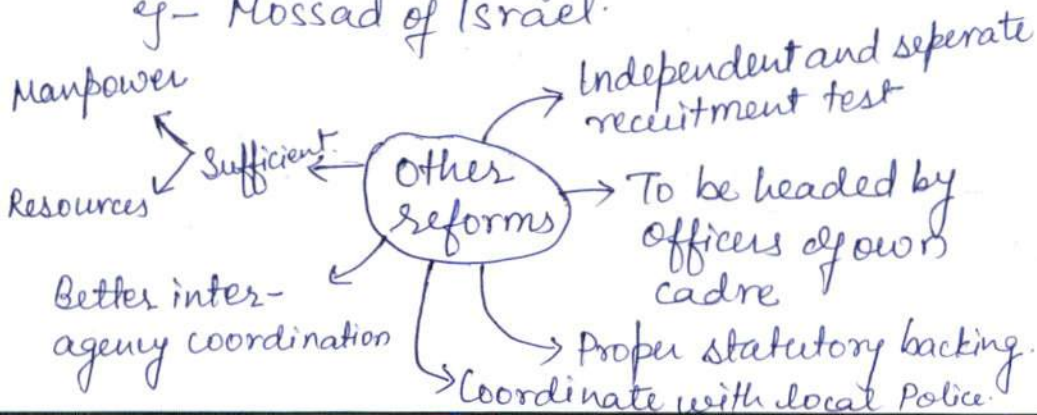 eg- Mossad of Israel.
Manpower
Sufficient.
Resources
Other
reforms
Independent and seperate
recruitment test
To be headed by
Officers of own
cadre
Better inter-
agency coordination
Proper statutory backing.
Coordinate with local Police.